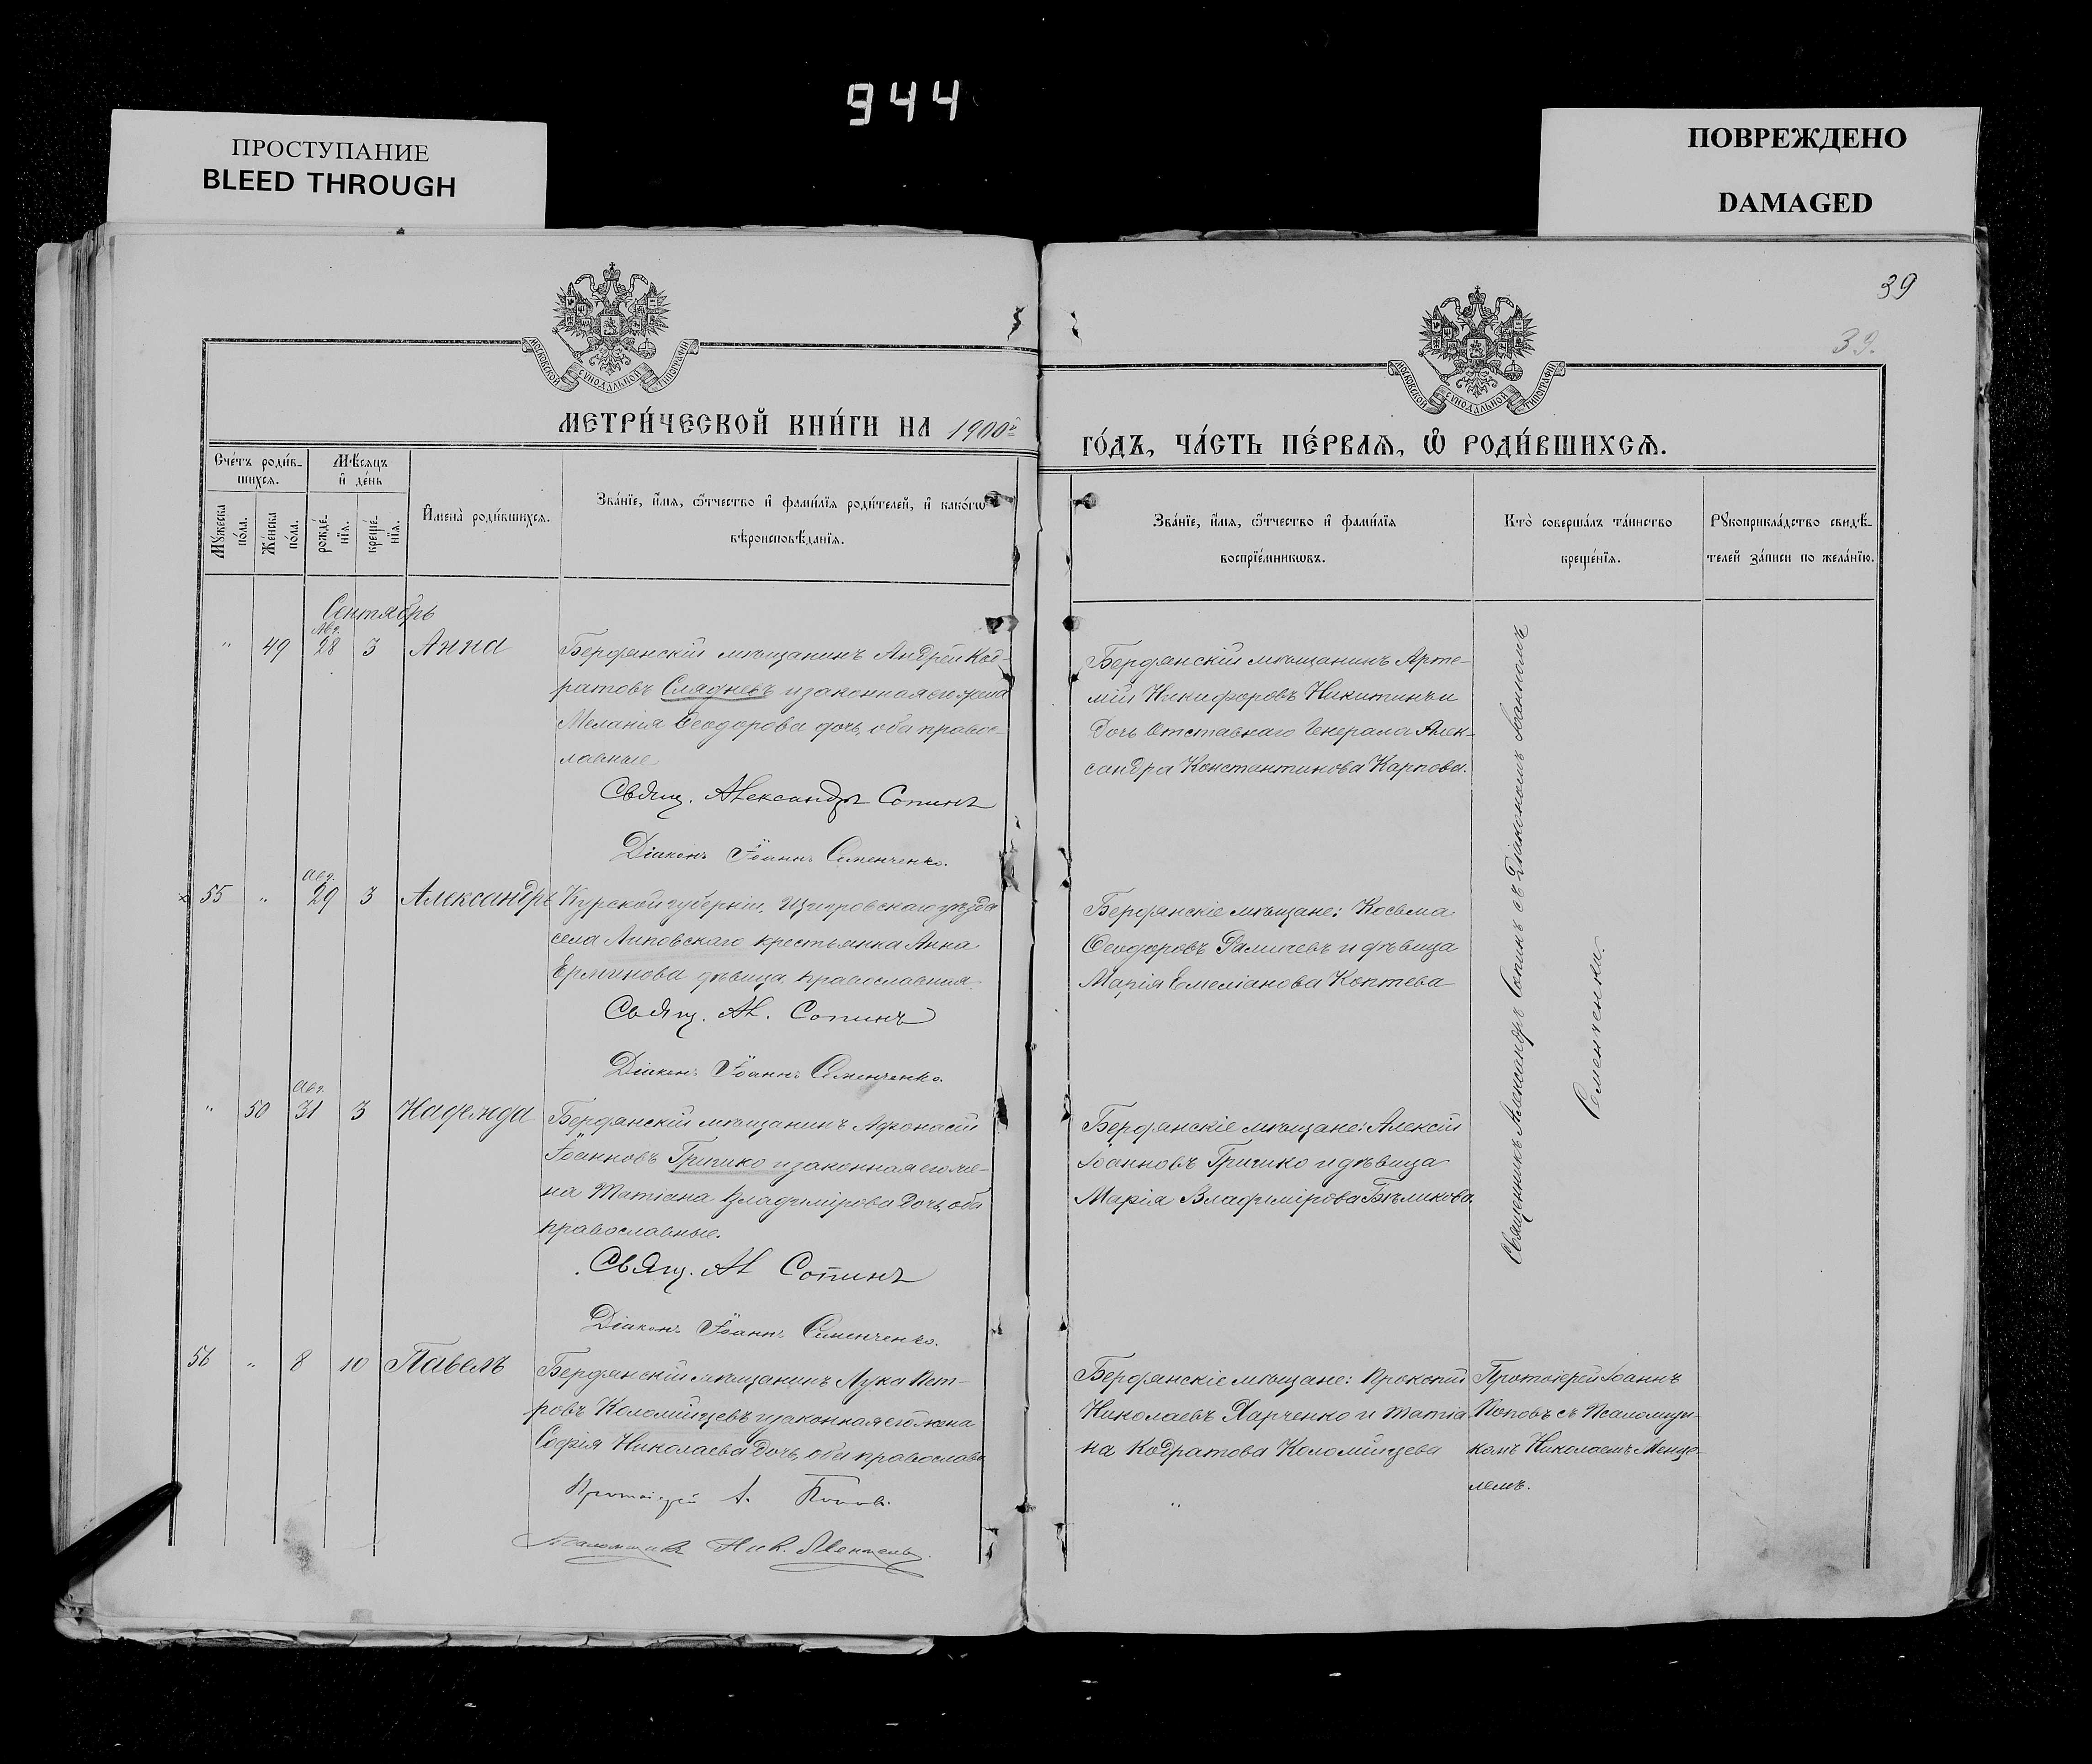 944
ПРОСТУПАНИЕ
BLEED THROUGH
ПОВРЕЖДЕНО
DAMAGED
39
39.
МОСКОВСКОЙ СѴНОДАЛЬНОЙ ТИПОГРАФІИ
МОСКОВСКОЙ СѴНОДАЛЬНОЙ ТИПОГРАФІИ
МЕТРИ́ЧЕСКОЙ КНИ́ГИ НА 1900й
ГО́ДЪ, ЧА́СТЬ ПЕ́РВАѦ, Ѽ РОДИ́ВШИХСѦ.
Сче́тъ роди́в-
шихсѧ.
Мѣ́сяцъ
и҆ де́нь
Мꙋ́жеска
по́ла.
Же́нска
по́ла.
рожде́-
нїѧ.
креще́-
нїѧ.
И҆мена̀ роди́вшихсѧ.
Зва́нїе, и҆́мѧ, ѻ҆́тчество и҆ фами́лїѧ роди́телей, и҆ како́гѡ
вѣроисповѣ́данїѧ.
Зва́нїе, и҆́мѧ, ѻ҆́тчество и҆ фами́лїѧ
воспрїе́мникѡвъ.
Кто̀ соверша́лъ та́инство
креще́нїѧ.
Рꙋкоприкла́дство свидѣ́-
телей за́писи по жела́нїю.
Сентябрь
Авг.
" 49 28 3 Анна
Бердянскій мѣщанинъ Андрей Код-
ратовъ Слядневъ и законная его жена
Меланія Ѳеодорова дочь, оба правос-
лавные
Свящ. Александръ Сопинъ
Діаконъ Іоаннъ Семенченко.
Бердянскій мѣщанинъ Арте-
мій Никифоровъ Никитинъ и
Дочь Отставнаго Генерала Алек-
сандра Константинова Карпова.
Священникъ Александръ Сопинъ съ Діакономъ Іоанномъ
Семенченко.
Авг.
55 " 29 3 Александръ
Курской губерніи, Щигровскаго уѣзда
села Липовскаго крестьянка Анна
дѣвица, православная.
Свящ. Ал. Сопинъ
Діаконъ Іоаннъ Семенченко.
Бердянскіе мѣщане: Косьма
Ѳеодоровъ и дѣвица
Марія Емеліанова Коптева
Авг.
" 50 31 3 Надежда
Бердянскій мѣщанинъ Афонасій
Іоанновъ Гришко и законная его же-
на Татіана Владимірова дочь, оба
православные.
Свящ. Ал Сопинъ
Діаконъ Іоаннъ Семенченко.
Бердянскіе мѣщане: Алексій
Іоанновъ Гришко и дѣвица
Марія Владимірова Бѣликова.
56 " 8 10 Павелъ
Бердянскій мѣщанинъ Лука Пет-
ровъ Коломійцевъ и законная его жена
Софія Николаева дочь, оба православн.
Протоіерей І. Поповъ.
Псаломщикъ Ник. Менцель.
Бердянскіе мѣщане: Прокопій
Николаевъ Харченко и Татіа
на Кодратова Коломійцева
"
Протоіерей Іоаннъ
Поповъ съ Псаломщи-
комъ Николаемъ Менце-
лемъ.